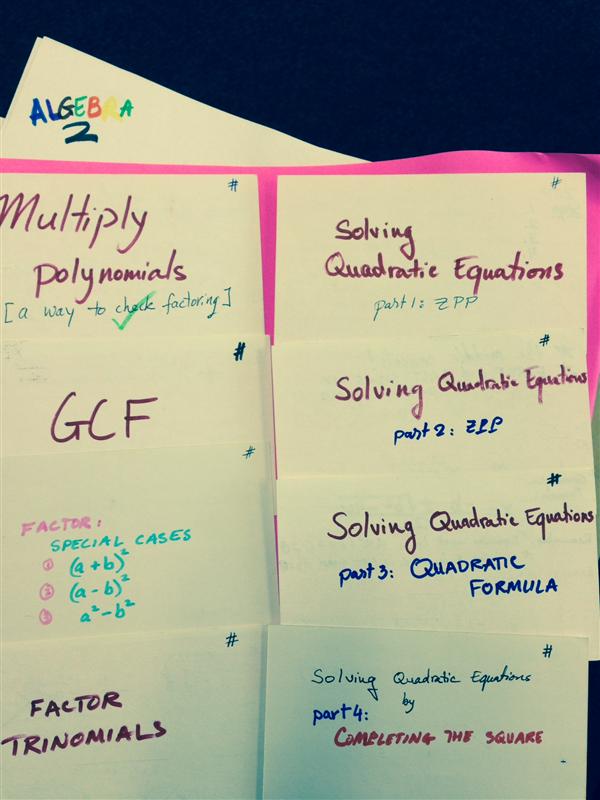 ALGEBRA
2
#
Multiply
polynomials
[a way to check factoring]
#
GCF
#
FACTOR:
SPECIAL CASES
① (a+b)²
② (a-b)²
③ a²-b²
#
FACTOR
TRINOMIALS
#
Solving
Quadratic Equations
part 1: ZPP
#
Solving Quadratic Equations
part 2: ZPP
#
Solving Quadratic Equations
part 3: QUADRATIC
FORMULA
#
Solving Quadratic Equations
by
part 4:
COMPLETING THE SQUARE